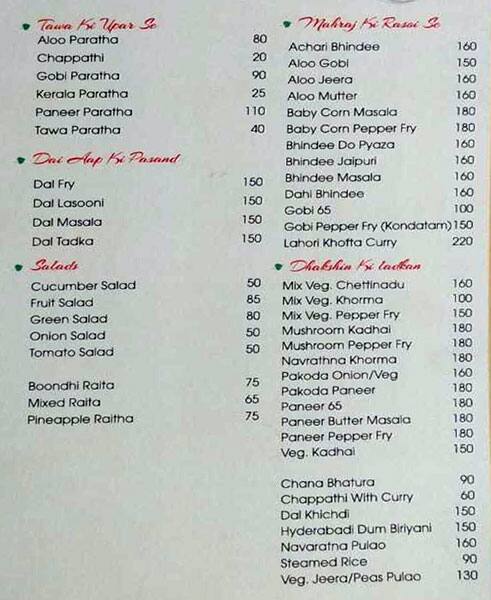 Tawa Ki Upar Se
Aloo Paratha 80
Chappathi 20
Gobi Paratha 90
Kerala Paratha 25
Paneer Paratha 110
Tawa Paratha 40
Dai Aap Ki Pasand
Dal Fry 150
Dal Lasooni 150
Dal Masala 150
Dal Tadka 150
Salads
Cucumber Salad 50
Fruit Salad 85
Green Salad 80
Onion Salad 50
Tomato Salad 50
Boondhi Raita 75
Mixed Raita 65
Pineapple Raitha 75
Mahraj Ki Rasoi Se
Achari Bhindee 160
Aloo Gobi 150
Aloo Jeera 160
Aloo Mutter 160
Baby Corn Masala 180
Baby Corn Pepper Fry 180
Bhindee Do Pyaza 160
Bhindee Jaipuri 160
Bhindee Masala 160
Dahi Bhindee 160
Gobi 65 100
Gobi Pepper Fry (Kondatam) 150
Lahori Khofta Curry 220
Dhakshin Ki ladkan
Mix Veg. Chettinadu 160
Mix Veg. Khorma 100
Mix Veg. Pepper Fry 150
Mushroom Kadhai 180
Mushroom Pepper Fry 180
Navrathna Khorma 180
Pakoda Onion/Veg 160
Pakoda Paneer 180
Paneer 65 180
Paneer Butter Masala 180
Paneer Pepper Fry 180
Veg. Kadhai 150
Chana Bhatura 90
Chappathi With Curry 60
Dal Khichdi 150
Hyderabadi Dum Biriyani 150
Navaratna Pulao 160
Steamed Rice 90
Veg. Jeera/Peas Pulao 130